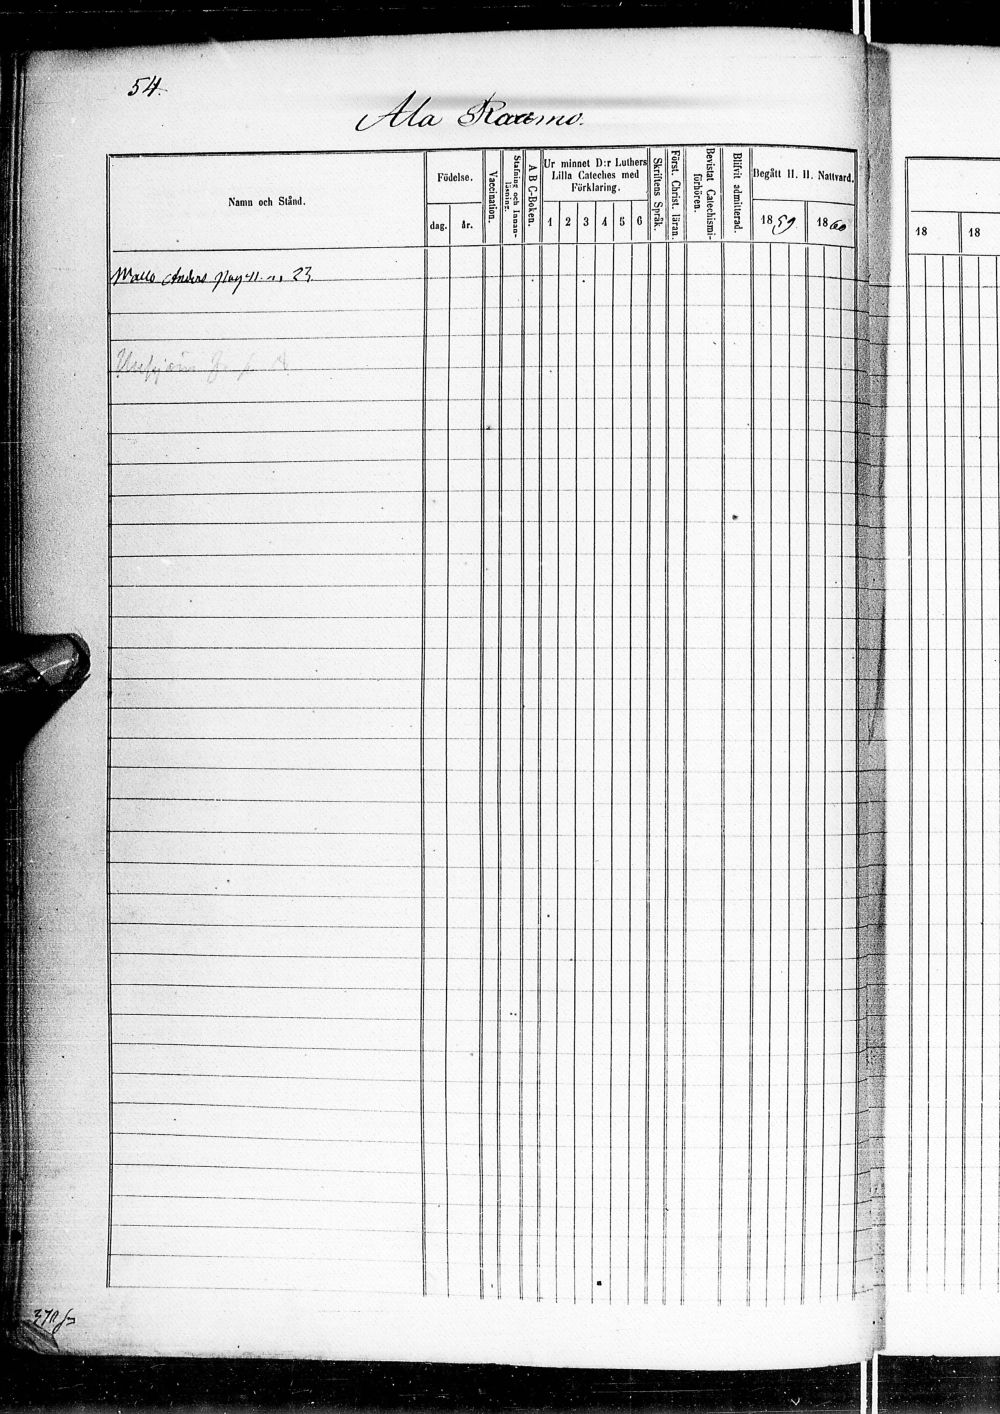 54.
Ala Raumo.
Namn och Stånd.
Födelse.
dag.
år.
Vaccination.
Stafning och Innan-
läsning.
A B C-Boken.
Ur minnet D:r Luthers
Lilla Cateches med
Förklaring.
1 2 3 4 5 6
Skriftens Språk.
Först. Christ. läran.
Bevistat Catechismi-
förhören.
Blifvit admitterad.
Begått H. H. Nattvard.
1859
1860
18
18
Anders 23